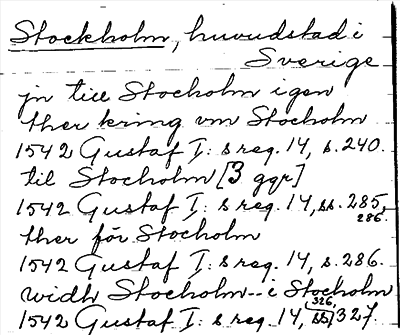 Stockholm, huvudstad i
Sverige
jn till Stocholm igen
ther kring vm Stocholm
1542 Gustaf I: s reg. 14, s. 240.
til Stocholm [3 ggr]
1542 Gustaf I: s reg. 14, ss. 285,
286.
ther för Stocholm
1542 Gustaf I: s reg. 14, s. 286.
widh Stocholm - - i Stocholm
1542 Gustaf I: s reg. 14, ss. 326, 327.